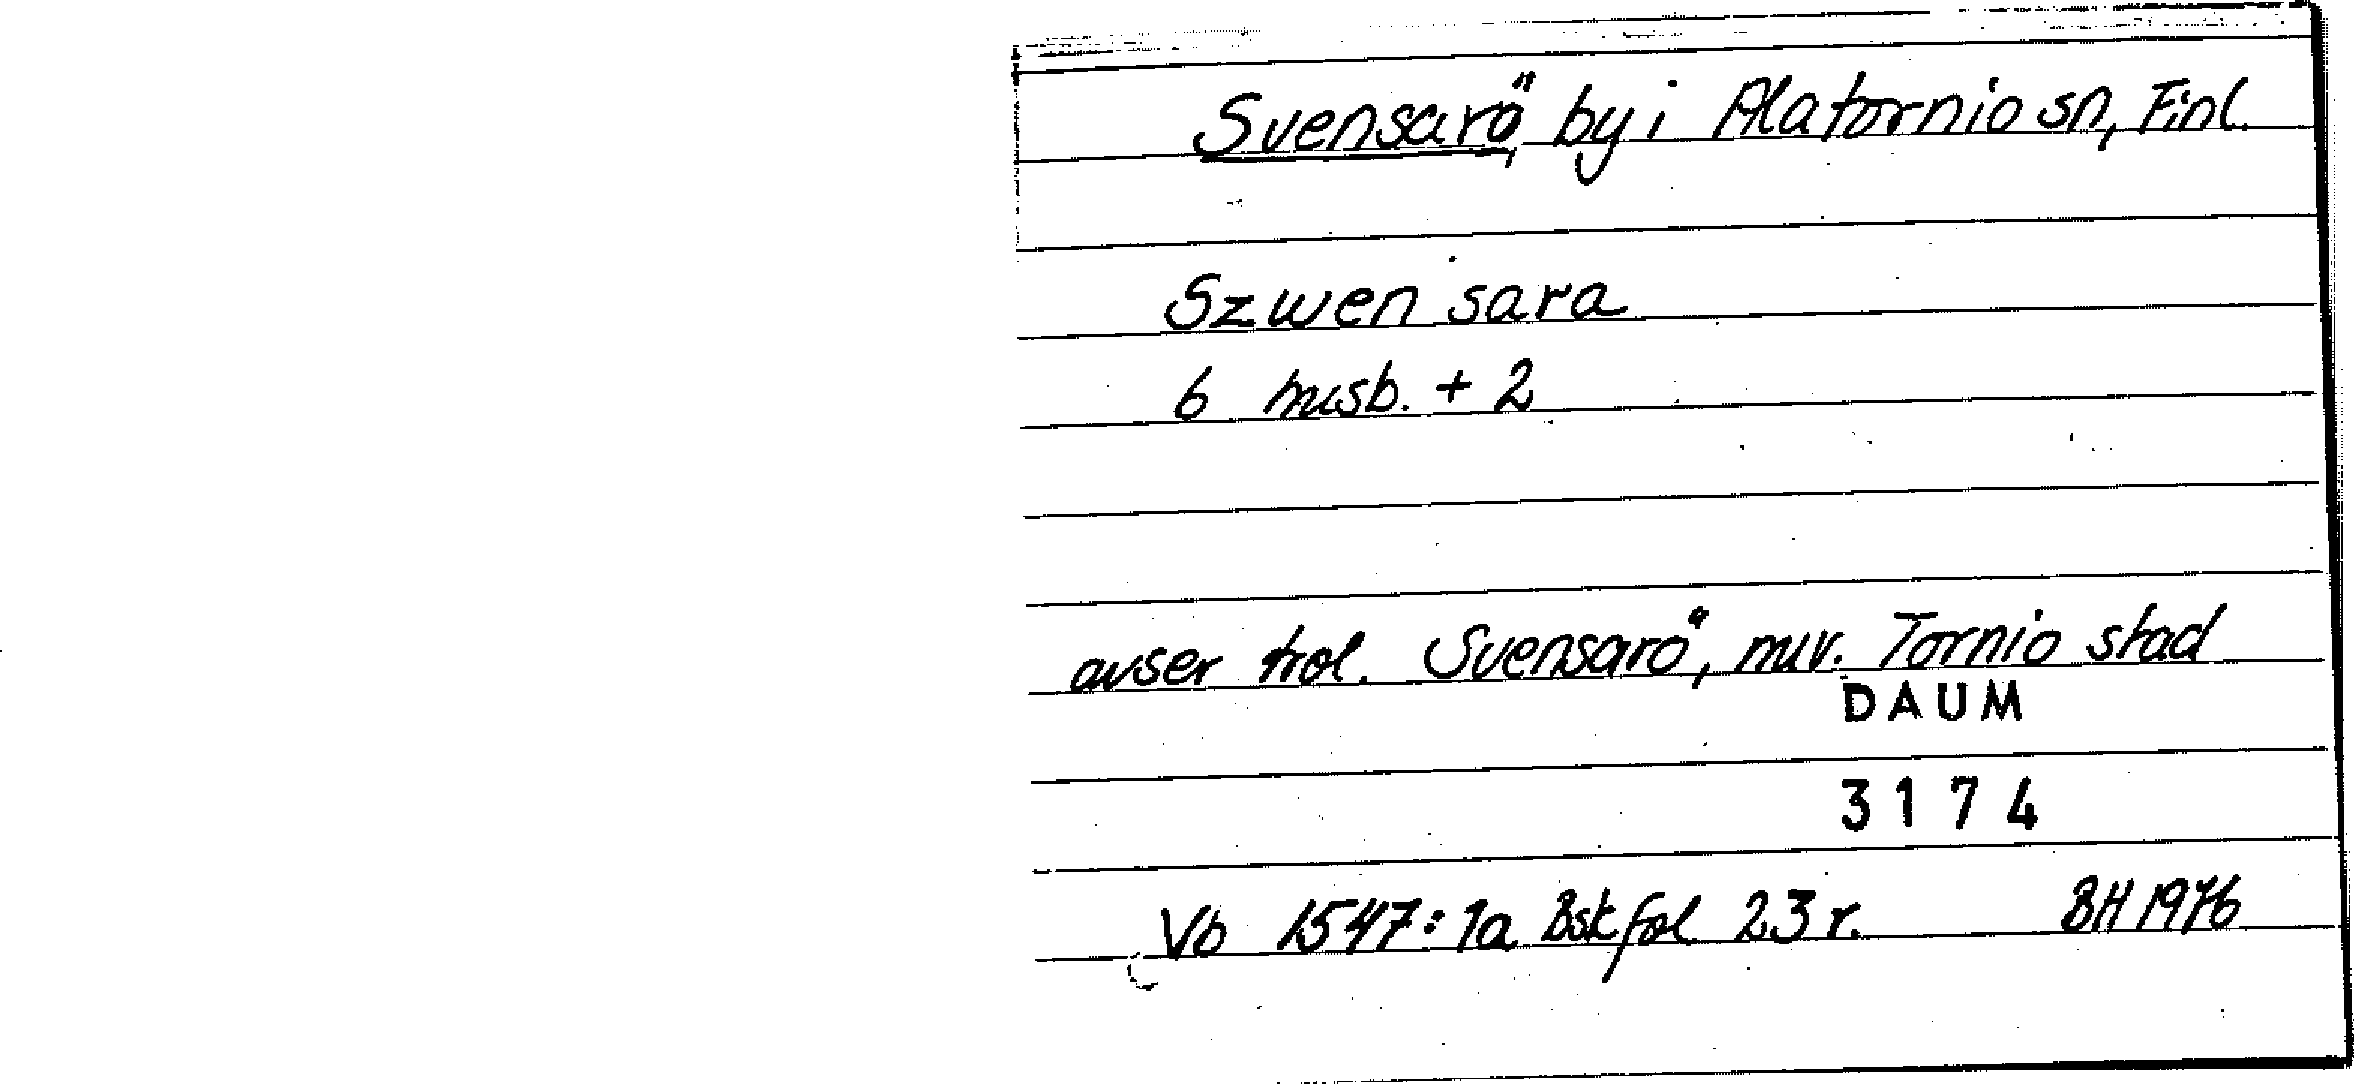 Svensarö, by i Alatornio sn, Finl.
Szwen sara
6 husb. + 2
avser trol. Svensarö, nuv. Tornio stad
DAUM
3174
Vb 1547:1a Bsk fol 23 r. BH 1976